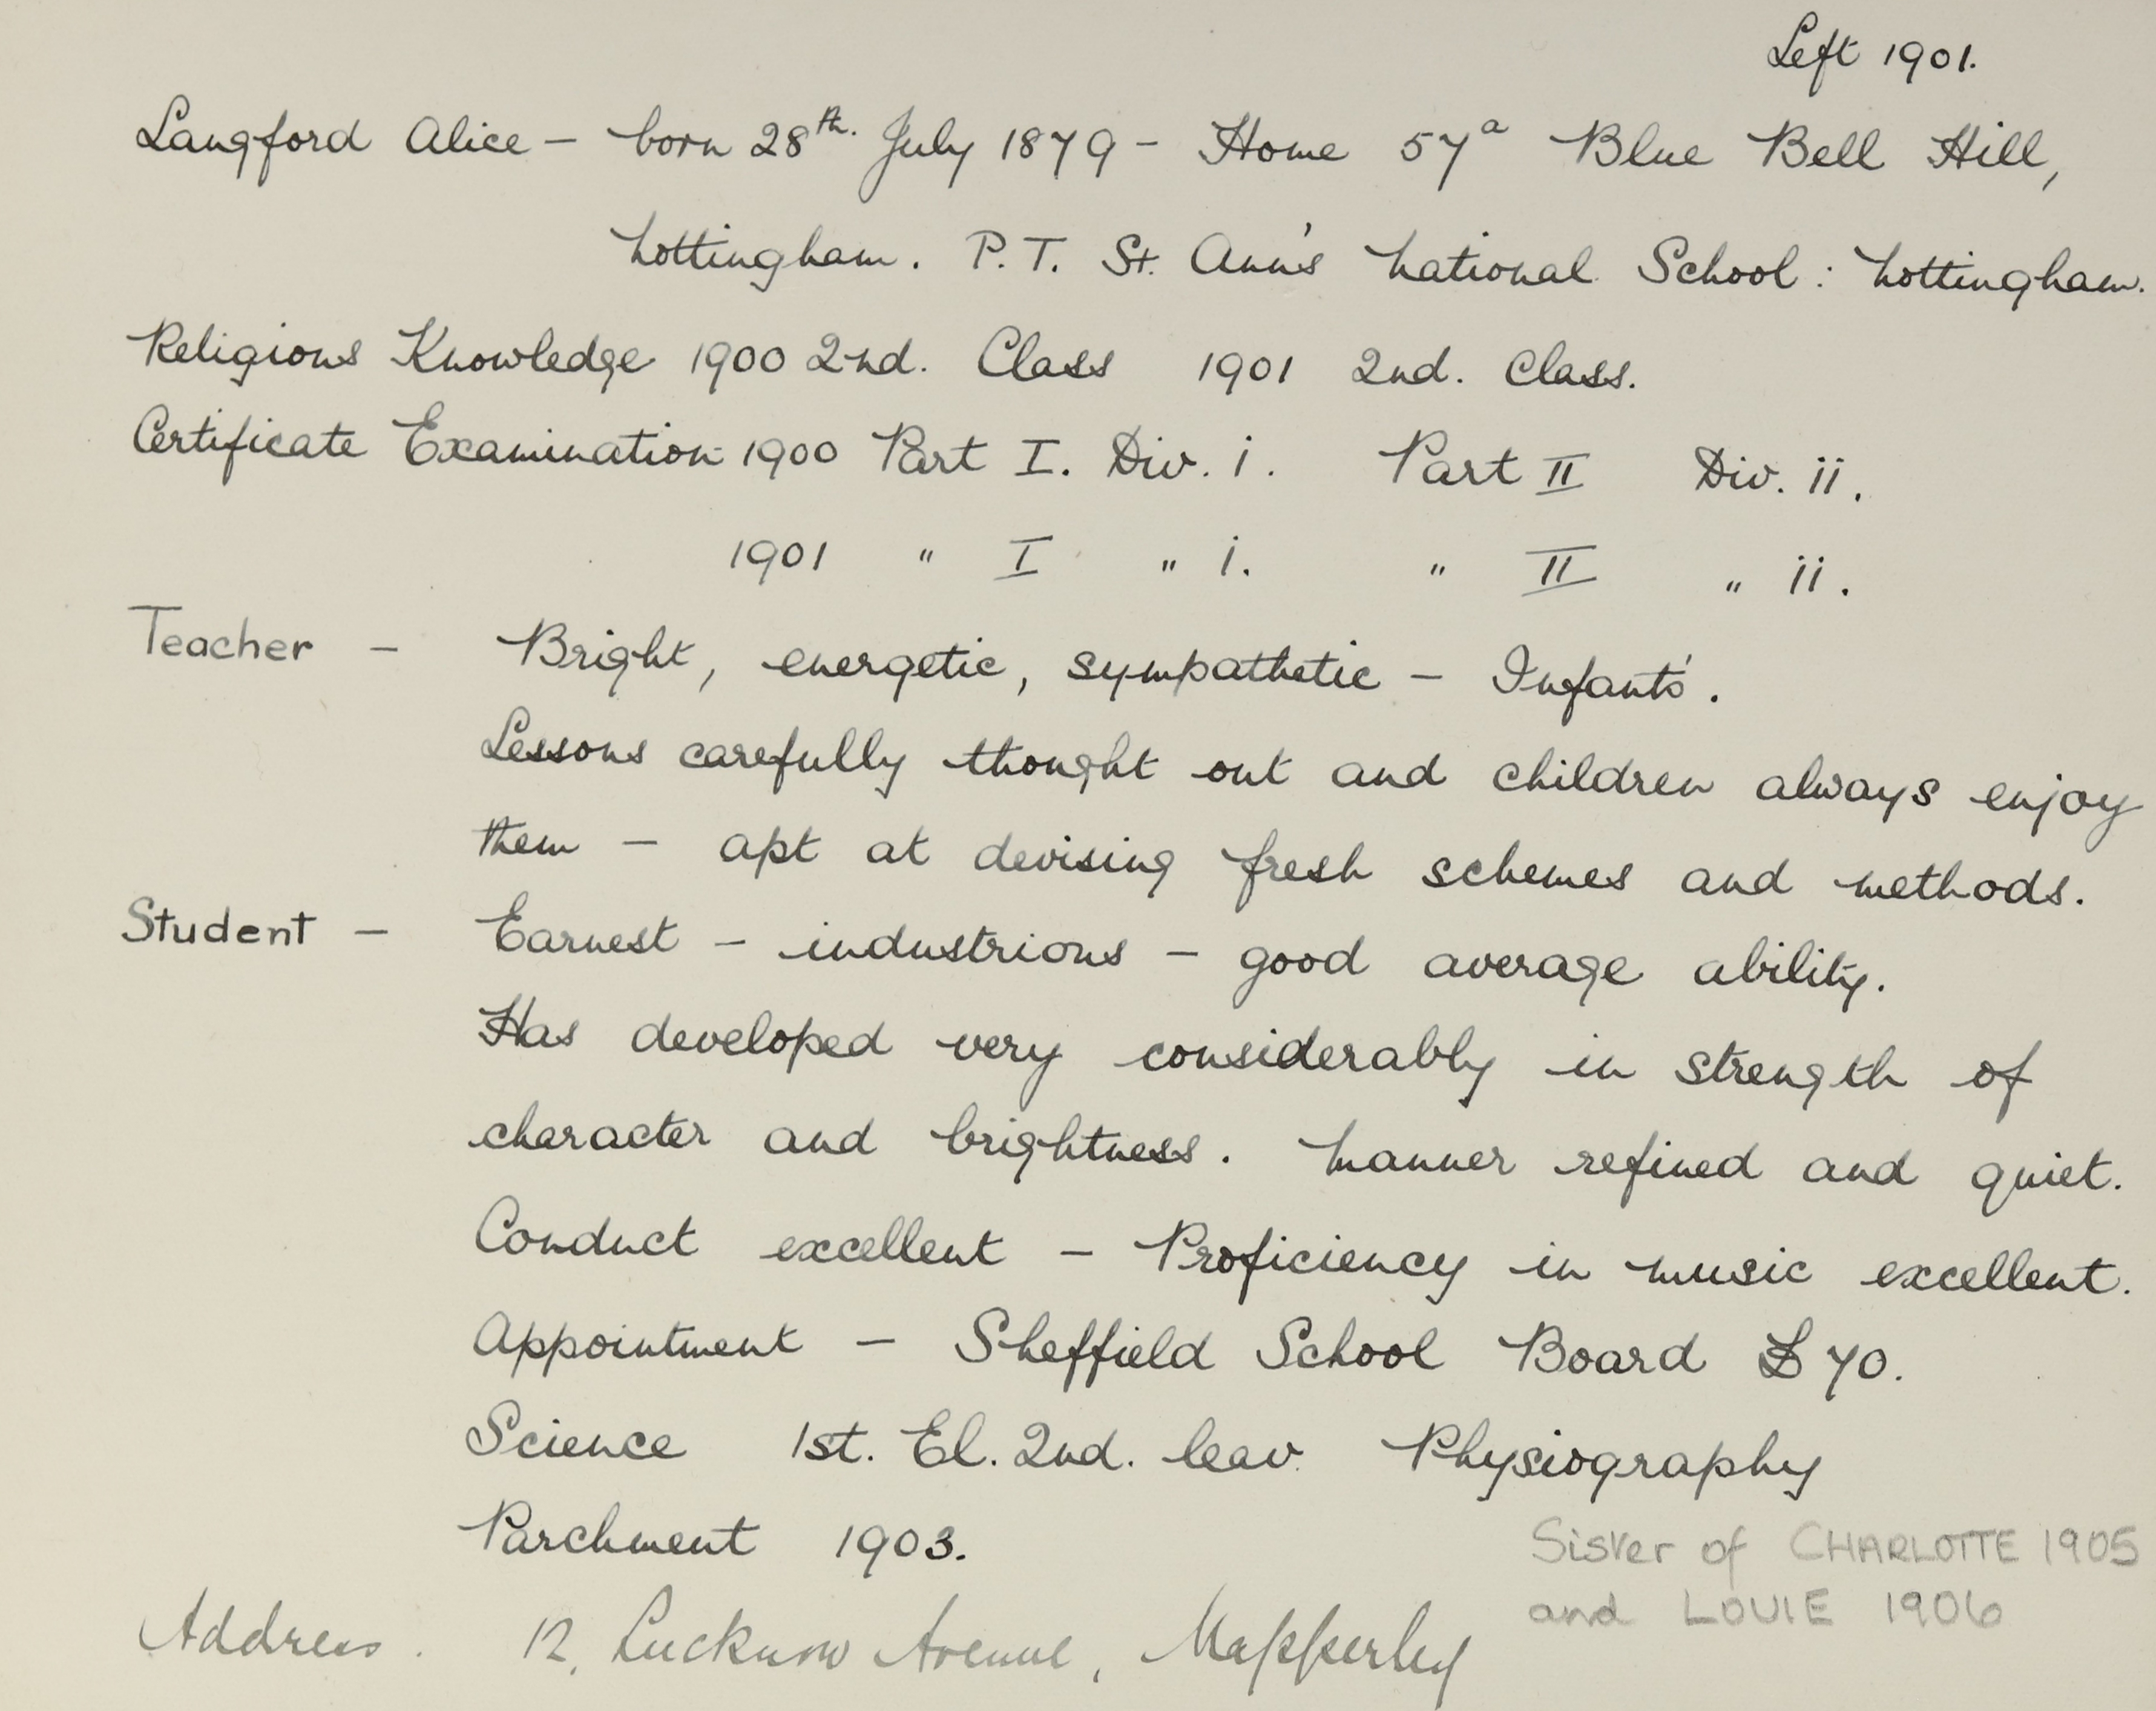 Left 1901.
Langford Alice - born 28th. July 1879 - Home 57a Blue Bell Hill,
Nottingham. P.T. St. Ann's National School: Nottingham.
Religious Knowledge 1900 2nd. Class 1901 2nd. Class.
Certificate Examination 1900 Part I. Div. i. Part II Div. ii.
1901 " I " i. " II " ii.
Teacher - Bright, energetic, sympathetic - Infants'.
Lessons carefully thought out and children always enjoy
them - apt at devising fresh schemes and methods.
Student - Earnest - industrious - good average ability.
Has developed very considerably in strength of
character and brightness. Manner refined and quiet.
Conduct excellent - Proficiency in music excellent.
Appointment - Sheffield School Board £70.
Science 1st. El. 2nd. leav. Physiography
Parchment 1903.
Sister of CHARLOTTE 1905
and LOUIE 1906
Address. 12, Lucknow Avenue, Mapperley